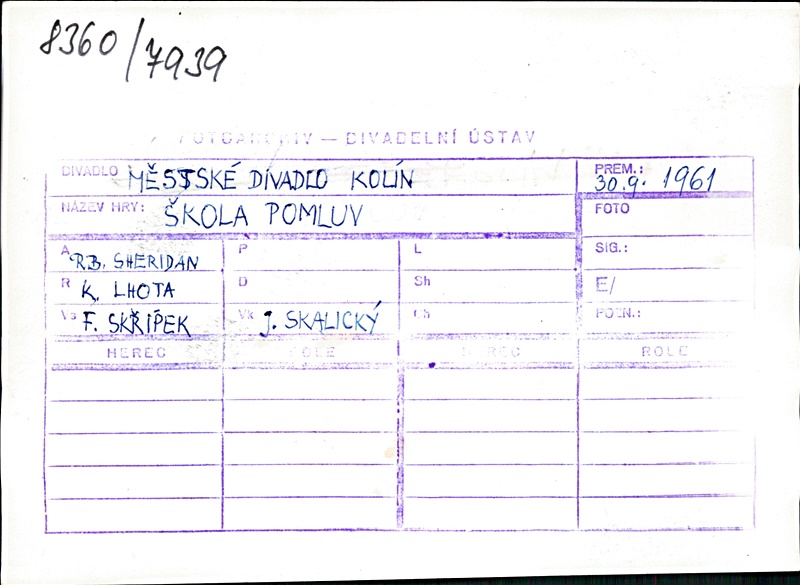 8360/7939
FOTOARCHIV — DIVADELNÍ ÚSTAV
DIVADLO MĚSTSKÉ DIVADLO KOLÍN
PREM.: 30.9. 1961
NÁZEV HRY: ŠKOLA POMLUV
FOTO
A R.B. SHERIDAN P L SIG.:
R K. LHOTA D Sh E/
Vs F. SKŘÍPEK Vk J. SKALICKÝ Ch POZN.:
HEREC ROLE HEREC ROLE